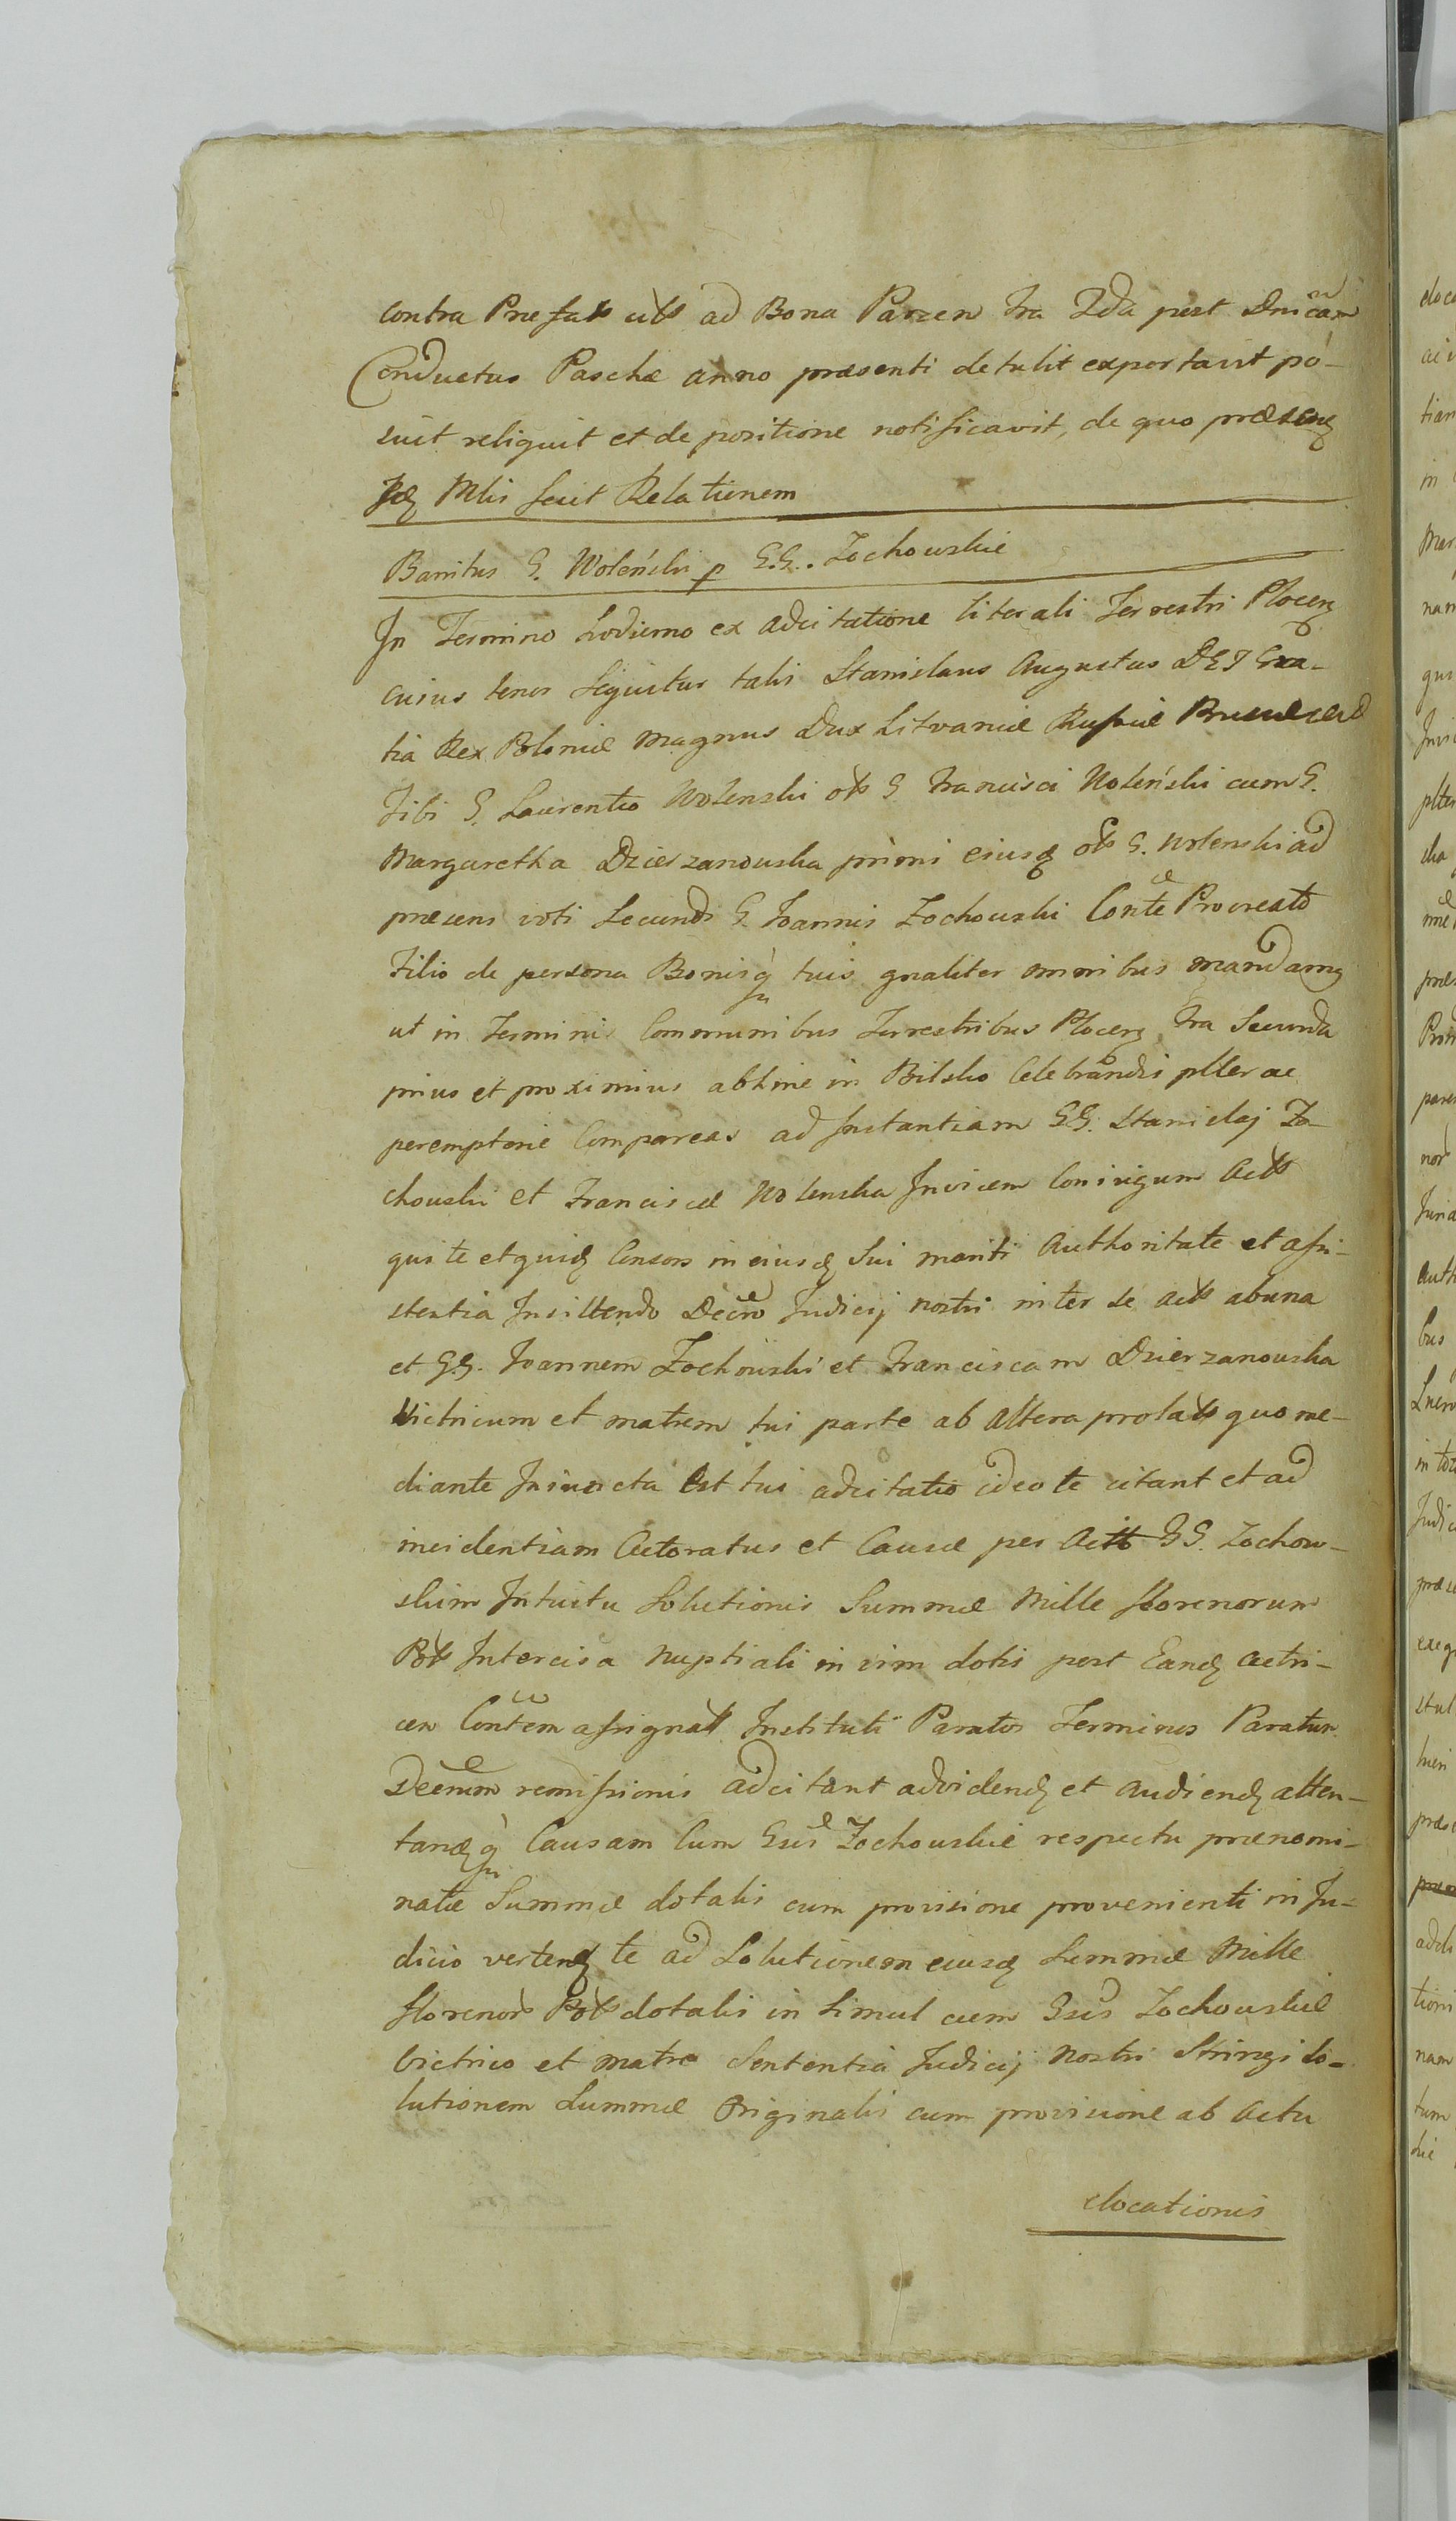 contra Præfats ctts ad Bona Parzen fra 2da post Dnicam
Conductus Paschæ anno præsenti detulit exportavit po-
suit reliquit et de positione notificavit, de quo præsens
Mlis fecit Relationem
Banitus G. Woleński p G.G. Zochowskie
In Termino hodierno ex adcitatione literali Terrestri Plocen
cuius tenor sequitur talis Stanislaus Augustus DEI Gra-
tia Rex Poloniæ Magnus Dux Litvaniæ Russiæ Prussiæ
Tibi G. Laurentio Wolenski ols G. Francisci Woleński cum G.
Margaretha Dzierzanowska primi eiusq ols G. Wolenski ad
præsens voti Secundi G. Joannis Zochowski Conte Procreato
Filio de persona Bonisq tuis gnaliter omnibus mandamq
ut in Terminis Communibus Terrestribus Plocen fra Secunda
prius et proximius abhinc in Bilsko Celebrandis plter ac
peremptorie Compareas ad Instantiam GG. Stanislaj Zo-
chowski et Franciscæ Wolenska Invicem Coniugum Acts
qui te et quidq Consors in eiusq sui mariti Authoritate et assi-
stentia Insistendo Decro Judicij nostri inter se acts ab una
et G.G. Joannem Zochowski et Franciscam Dzierzanowska
Victricum et matrem tui parte ab altera prolats quo me-
diante Iniuncta Est tui adcitatio ideo te citant et ad
incidentiam Actoratus et Causæ per Acts GG. Zochow-
skim Intuitu Solutionis Summæ Mille florenorum
Pols Intercisa nuptiali in vim dotis post Eandq actri-
cem Contem assignats Instituti Parator Terminus Paratum
Decretum remissionis adcitant ad videndq et audiendq atten-
tandq q Causam Cum Gsis Zochowskie respectu prænomi-
natæ Summæ dotalis cum provisione provenienti in Ju-
dicio vertendq te ad Solutionem eiusdq Summæ Mille
florenor Pols dotalis in simul cum Gsis Zochowskie
Victrico et matre Sententia Judicij Nostri Stringi so-
lutionem Summæ Originalis cum provisione ab Actu
elocationis